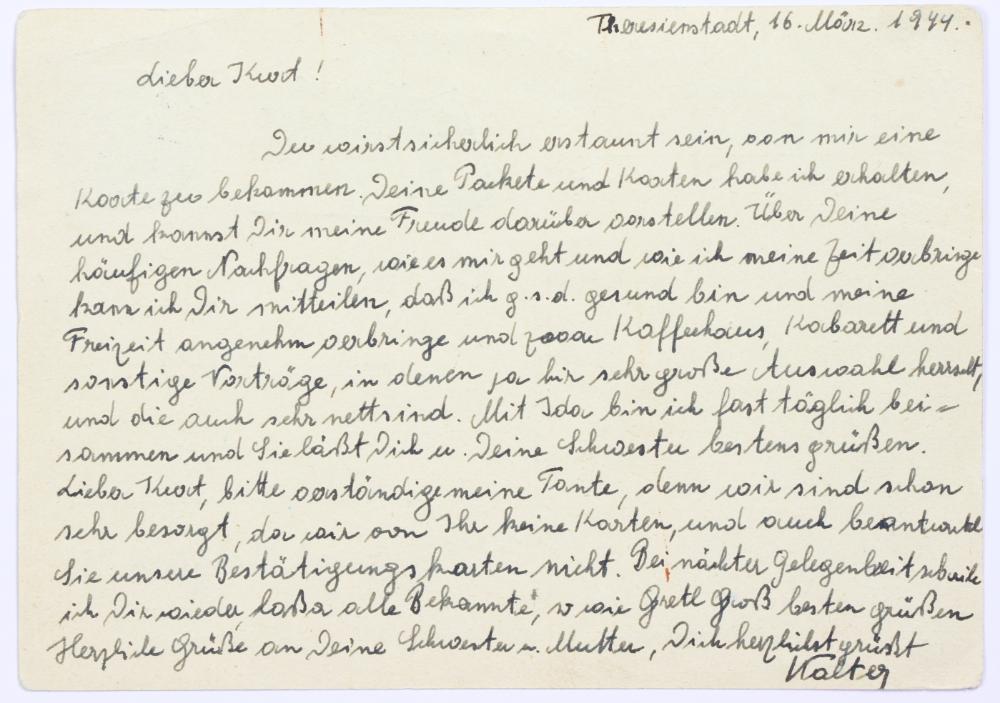 Theresienstadt, 16. März. 1944.
Lieber Kurt!
Du wirst sicherlich erstaunt sein, von mir eine
Karte zu bekommen. Deine Packete und Karten habe ich erhalten,
und kannst Dir meine Freude darüber vorstellen. Über Deine
häufigen Nachfragen, wie es mir geht und wie ich meine Zeit verbringe
kann ich Dir mitteilen, daß ich g.s.d. gesund bin und meine
Freizeit angenehm verbringe und zwar Kaffeehaus, Kabarett und
sonstige Vorträge, in denen ja hir sehr große Auswahl herrscht,
und die auch sehr nett sind. Mit Ida bin ich fast täglich bei=
sammen und Sie läßt Dich u. Deine Schwester bestens grüßen.
Lieber Kurt, bitte verständige meine Tante, denn wir sind schon
sehr besorgt, da wir von Ihr keine Karten, und auch beantwortet
Sie unsere Bestätigungskarten nicht. Bei nächter Gelegenheit schreibe
ich Dir wieder, laße alle Bekannte, so wie Gretl Groß besten grüßen
Herzliche Grüße an Deine Schwester u. Mutter, Dich herzlichst grüßt
Walter